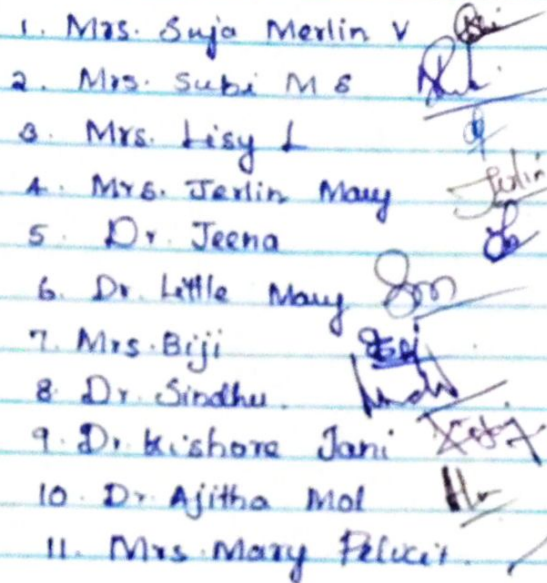 1. Mrs. Suja Merlin V
2. Mrs. Subi M S
3. Mrs. Lisy L
4. Mrs. Jerlin Mary Jerlin
5. Dr. Jeena
6. Dr. Little Mary
7. Mrs. Biji
8. Dr. Sindhu.
9. Dr Kishore Jani
10. Dr Ajitha Mol
11. Mrs. Mary